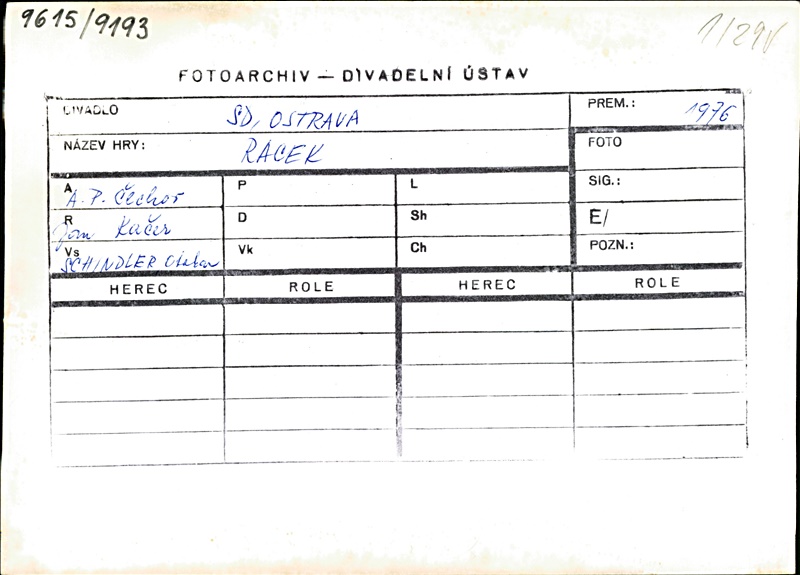 9615/9193
1/29
FOTOARCHIV — DIVADELNÍ ÚSTAV
DIVADLO SD, OSTRAVA PREM.: 1976
NÁZEV HRY: RACEK FOTO
A A. P. Čechov P L SIG.:
R Jan Kačer D Sh E/
Vs SCHINDLER Otakar Vk Ch POZN.:
HEREC ROLE HEREC ROLE